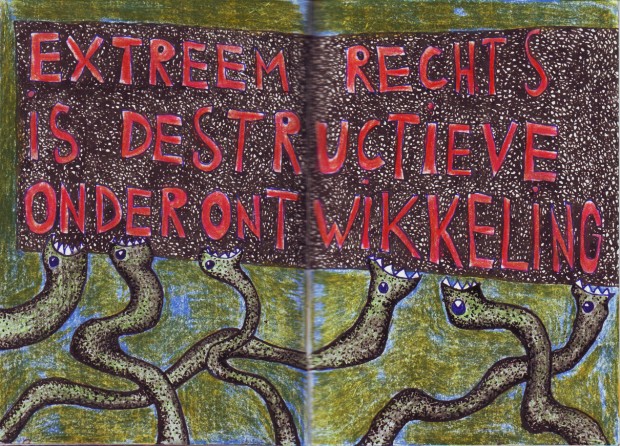 EXTREEM RECHTS
iS DESTRUCTiEVE
ONDERONTWiKKELiNG